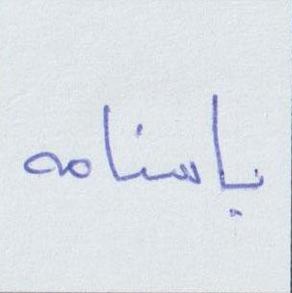 یاسنامه